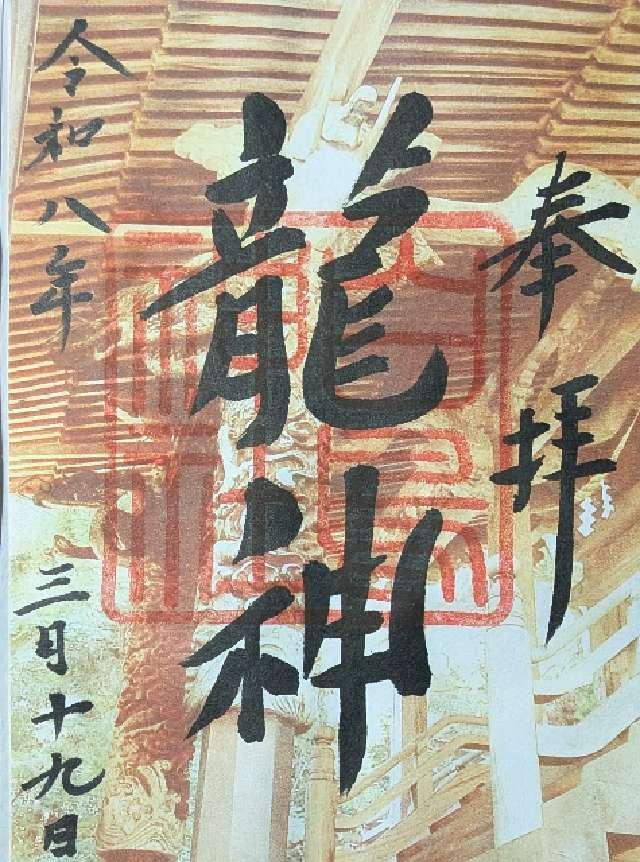 奉拝
龍神
令和八年
三月十九日